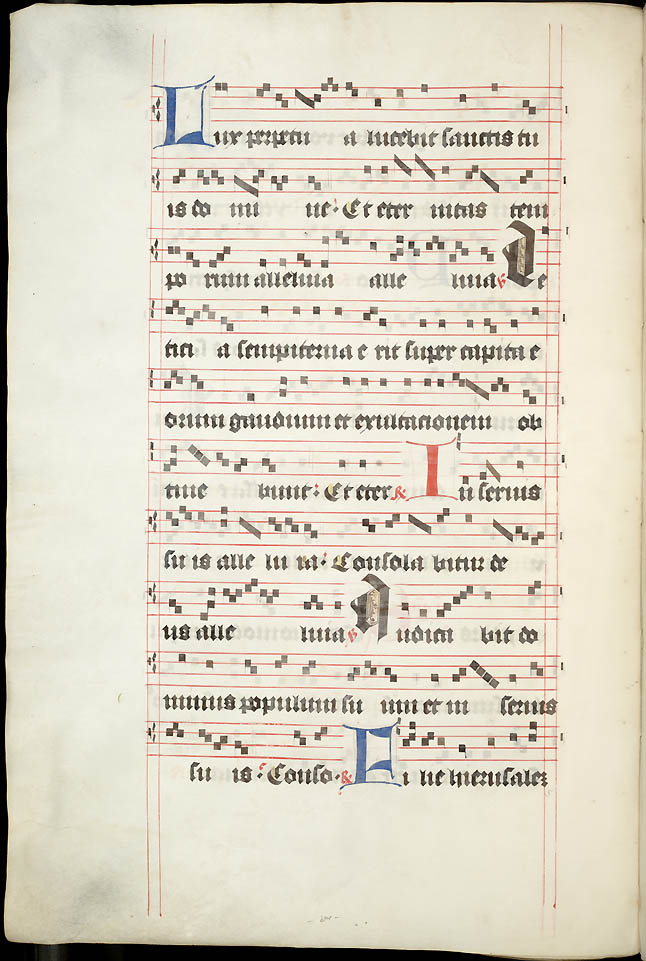 Lux perpetu a lucebit sanctis tu
is do mi ne: Et eter nitas tem
po rum alleluia alle luia ℣ Le
tici a sempiterna e rit super capita e
orum gaudium et exultacionem ob
tine bunt: Et eter & In seruis
su is alle lu ia: Consola bitur de
us alle luia ℣ Iudica bit do
minus populum su um et in seruis
su is: Conso & Fi lie iherusalem